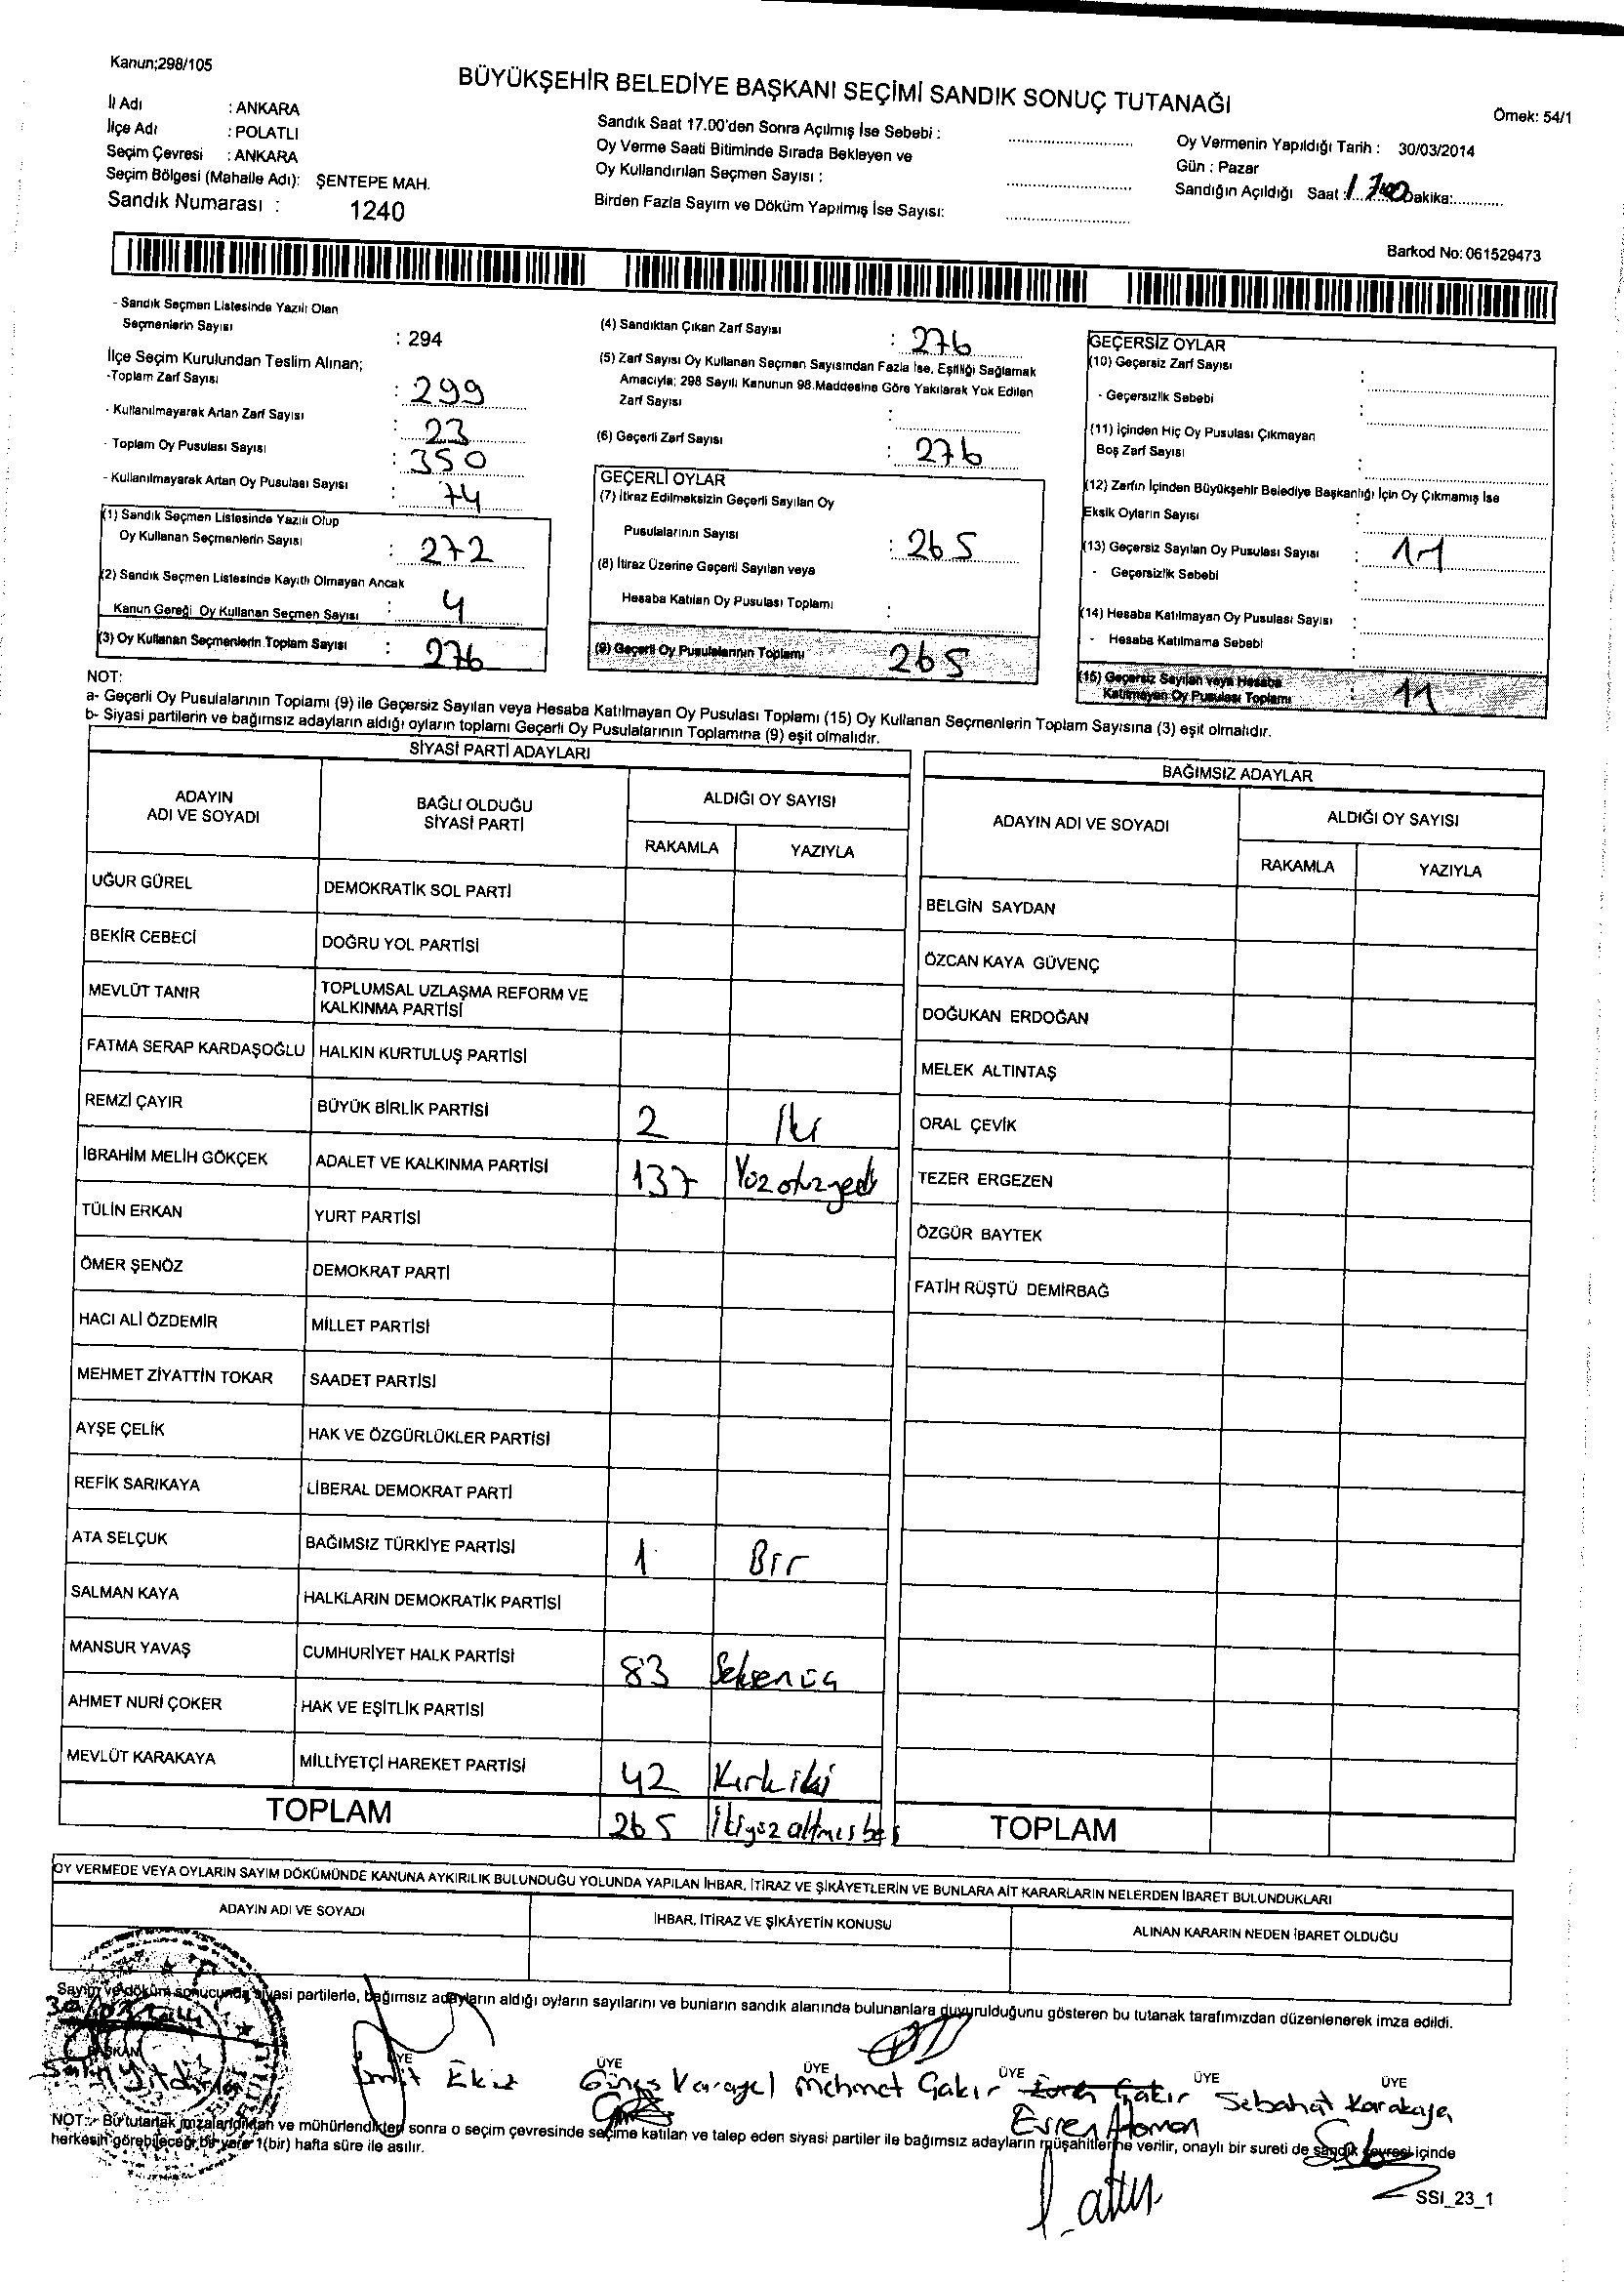 Kanun;298/105
BÜYÜKŞEHİR BELEDİYE BAŞKANI SEÇİMİ SANDIK SONUÇ TUTANAĞI
Örnek: 54/1
İl Adı : ANKARA
İlçe Adı : POLATLI
Seçim Çevresi : ANKARA
Seçim Bölgesi (Mahalle Adı): ŞENTEPE MAH.
Sandık Numarası : 1240
Sandık Saat 17.00'den Sonra Açılmış İse Sebebi :
Oy Verme Saati Bitiminde Sırada Bekleyen ve
Oy Kullandırılan Seçmen Sayısı :
Birden Fazla Sayım ve Döküm Yapılmış İse Sayısı:
Oy Vermenin Yapıldığı Tarih : 30/03/2014
Gün : Pazar
Sandığın Açıldığı Saat : 1700 Dakika:
Barkod No: 061529473
- Sandık Seçmen Listesinde Yazılı Olan
Seçmenlerin Sayısı : 294
İlçe Seçim Kurulundan Teslim Alınan;
-Toplam Zarf Sayısı : 299
- Kullanılmayarak Artan Zarf Sayısı : 23
- Toplam Oy Pusulası Sayısı : 350
- Kullanılmayarak Artan Oy Pusulası Sayısı : 74
(1) Sandık Seçmen Listesinde Yazılı Olup
Oy Kullanan Seçmenlerin Sayısı : 272
(2) Sandık Seçmen Listesinde Kayıtlı Olmayan Ancak
Kanun Gereği Oy Kullanan Seçmen Sayısı : 4
(3) Oy Kullanan Seçmenlerin Toplam Sayısı : 276
(4) Sandıktan Çıkan Zarf Sayısı : 276
(5) Zarf Sayısı Oy Kullanan Seçmen Sayısından Fazla İse, Eşitliği Sağlamak
Amacıyla; 298 Sayılı Kanunun 98.Maddesine Göre Yakılarak Yok Edilen
Zarf Sayısı :
(6) Geçerli Zarf Sayısı : 276
GEÇERLİ OYLAR
(7) İtiraz Edilmeksizin Geçerli Sayılan Oy
Pusulalarının Sayısı : 265
(8) İtiraz Üzerine Geçerli Sayılan veya
Hesaba Katılan Oy Pusulası Toplamı :
(9) Geçerli Oy Pusulalarının Toplamı 265
GEÇERSİZ OYLAR
(10) Geçersiz Zarf Sayısı :
- Geçersizlik Sebebi :
(11) İçinden Hiç Oy Pusulası Çıkmayan
Boş Zarf Sayısı :
(12) Zarfın İçinden Büyükşehir Belediye Başkanlığı İçin Oy Çıkmamış İse
Eksik Oyların Sayısı :
(13) Geçersiz Sayılan Oy Pusulası Sayısı : 11
- Geçersizlik Sebebi :
(14) Hesaba Katılmayan Oy Pusulası Sayısı :
- Hesaba Katılmama Sebebi :
(15) Geçersiz Sayılan veya Hesaba
Katılmayan Oy Pusulası Toplamı : 11
NOT:
a- Geçerli Oy Pusulalarının Toplamı (9) ile Geçersiz Sayılan veya Hesaba Katılmayan Oy Pusulası Toplamı (15) Oy Kullanan Seçmenlerin Toplam Sayısına (3) eşit olmalıdır.
b- Siyasi partilerin ve bağımsız adayların aldığı oyların toplamı Geçerli Oy Pusulalarının Toplamına (9) eşit olmalıdır.
SİYASİ PARTİ ADAYLARI
ADAYIN ADI VE SOYADI BAĞLI OLDUĞU SİYASİ PARTİ ALDIĞI OY SAYISI
RAKAMLA YAZIYLA
UĞUR GÜREL DEMOKRATİK SOL PARTİ
BEKİR CEBECİ DOĞRU YOL PARTİSİ
MEVLÜT TANIR TOPLUMSAL UZLAŞMA REFORM VE KALKINMA PARTİSİ
FATMA SERAP KARDAŞOĞLU HALKIN KURTULUŞ PARTİSİ
REMZİ ÇAYIR BÜYÜK BİRLİK PARTİSİ 2 İki
İBRAHİM MELİH GÖKÇEK ADALET VE KALKINMA PARTİSİ 137 Yüzotuzyedi
TÜLİN ERKAN YURT PARTİSİ
ÖMER ŞENÖZ DEMOKRAT PARTİ
HACI ALİ ÖZDEMİR MİLLET PARTİSİ
MEHMET ZİYATTİN TOKAR SAADET PARTİSİ
AYŞE ÇELİK HAK VE ÖZGÜRLÜKLER PARTİSİ
REFİK SARIKAYA LİBERAL DEMOKRAT PARTİ
ATA SELÇUK BAĞIMSIZ TÜRKİYE PARTİSİ 1 Bir
SALMAN KAYA HALKLARIN DEMOKRATİK PARTİSİ
MANSUR YAVAŞ CUMHURİYET HALK PARTİSİ 83 Seksenüç
AHMET NURİ ÇOKER HAK VE EŞİTLİK PARTİSİ
MEVLÜT KARAKAYA MİLLİYETÇİ HAREKET PARTİSİ 42 Kırkiki
TOPLAM 265 İkiyüzaltmışbeş
BAĞIMSIZ ADAYLAR
ADAYIN ADI VE SOYADI ALDIĞI OY SAYISI
RAKAMLA YAZIYLA
BELGİN SAYDAN
ÖZCAN KAYA GÜVENÇ
DOĞUKAN ERDOĞAN
MELEK ALTINTAŞ
ORAL ÇEVİK
TEZER ERGEZEN
ÖZGÜR BAYTEK
FATİH RÜŞTÜ DEMİRBAĞ
TOPLAM
OY VERMEDE VEYA OYLARIN SAYIM DÖKÜMÜNDE KANUNA AYKIRILIK BULUNDUĞU YOLUNDA YAPILAN İHBAR, İTİRAZ VE ŞİKÂYETLERİN VE BUNLARA AİT KARARLARIN NELERDEN İBARET BULUNDUKLARI
ADAYIN ADI VE SOYADI İHBAR, İTİRAZ VE ŞİKÂYETİN KONUSU ALINAN KARARIN NEDEN İBARET OLDUĞU
Sayım ve döküm sonucunda siyasi partilerle, bağımsız adayların aldığı oyların sayılarını ve bunların sandık alanında bulunanlara duyurulduğunu gösteren bu tutanak tarafımızdan düzenlenerek imza edildi.
BAŞKAN ÜYE ÜYE ÜYE ÜYE ÜYE ÜYE
Ümit Ekiz Güneş Karayel Mehmet Çakır Sebahat Karakaya
Evren Ataman
NOT:- Bu tutanak imzalandıktan ve mühürlendikten sonra o seçim çevresinde seçime katılan ve talep eden siyasi partiler ile bağımsız adayların müşahitlerine verilir, onaylı bir sureti de sandık çevresi içinde
herkesin görebileceği bir yere 1(bir) hafta süre ile asılır.
SSI_23_1